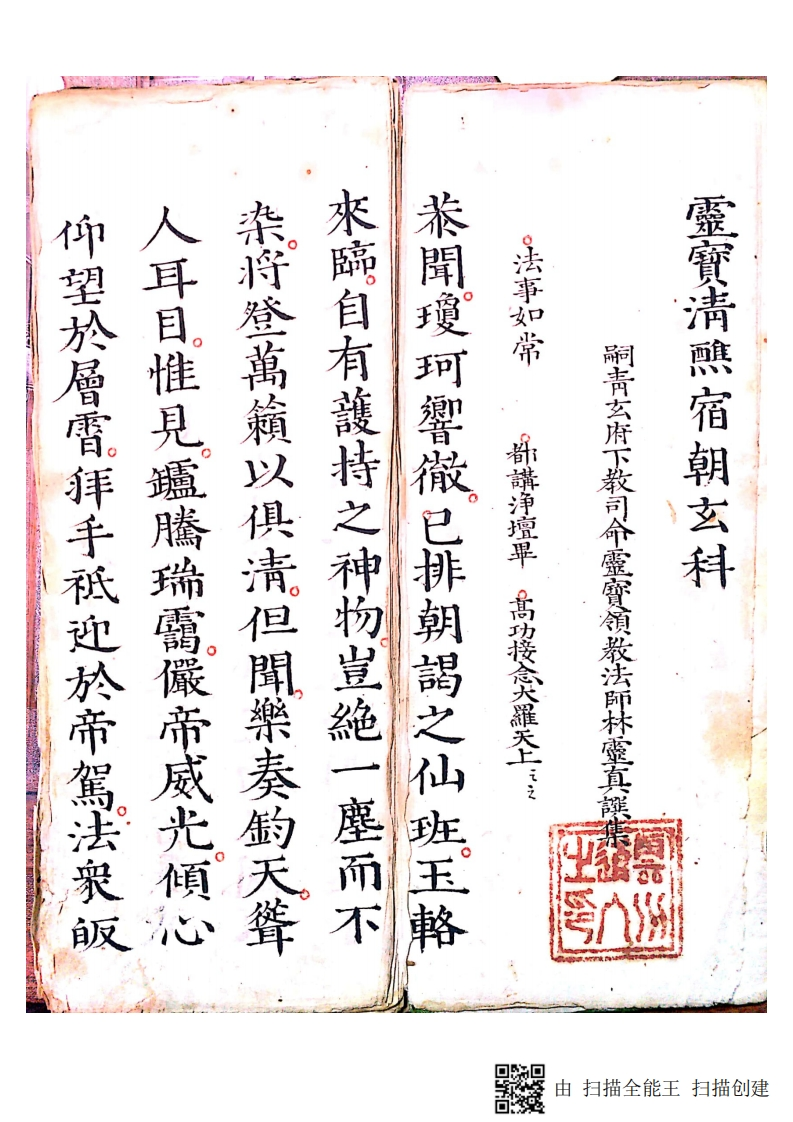 靈寶清醮宿朝玄科
嗣青玄府下教司命靈寶領教法師林靈真譔集
法事如常 都講浄壇畢 高功接念大羅天上
恭聞瓊珂響徹已排朝謁之仙班玉輅
來臨自有護持之神物豈絶一塵而不
染将登萬籟以俱清但聞樂奏鈞天聳
人耳目惟見鑪騰瑞靄儼帝威光傾心
仰望於層霄拜手祇迎於帝駕法衆皈
由 扫描全能王 扫描创建